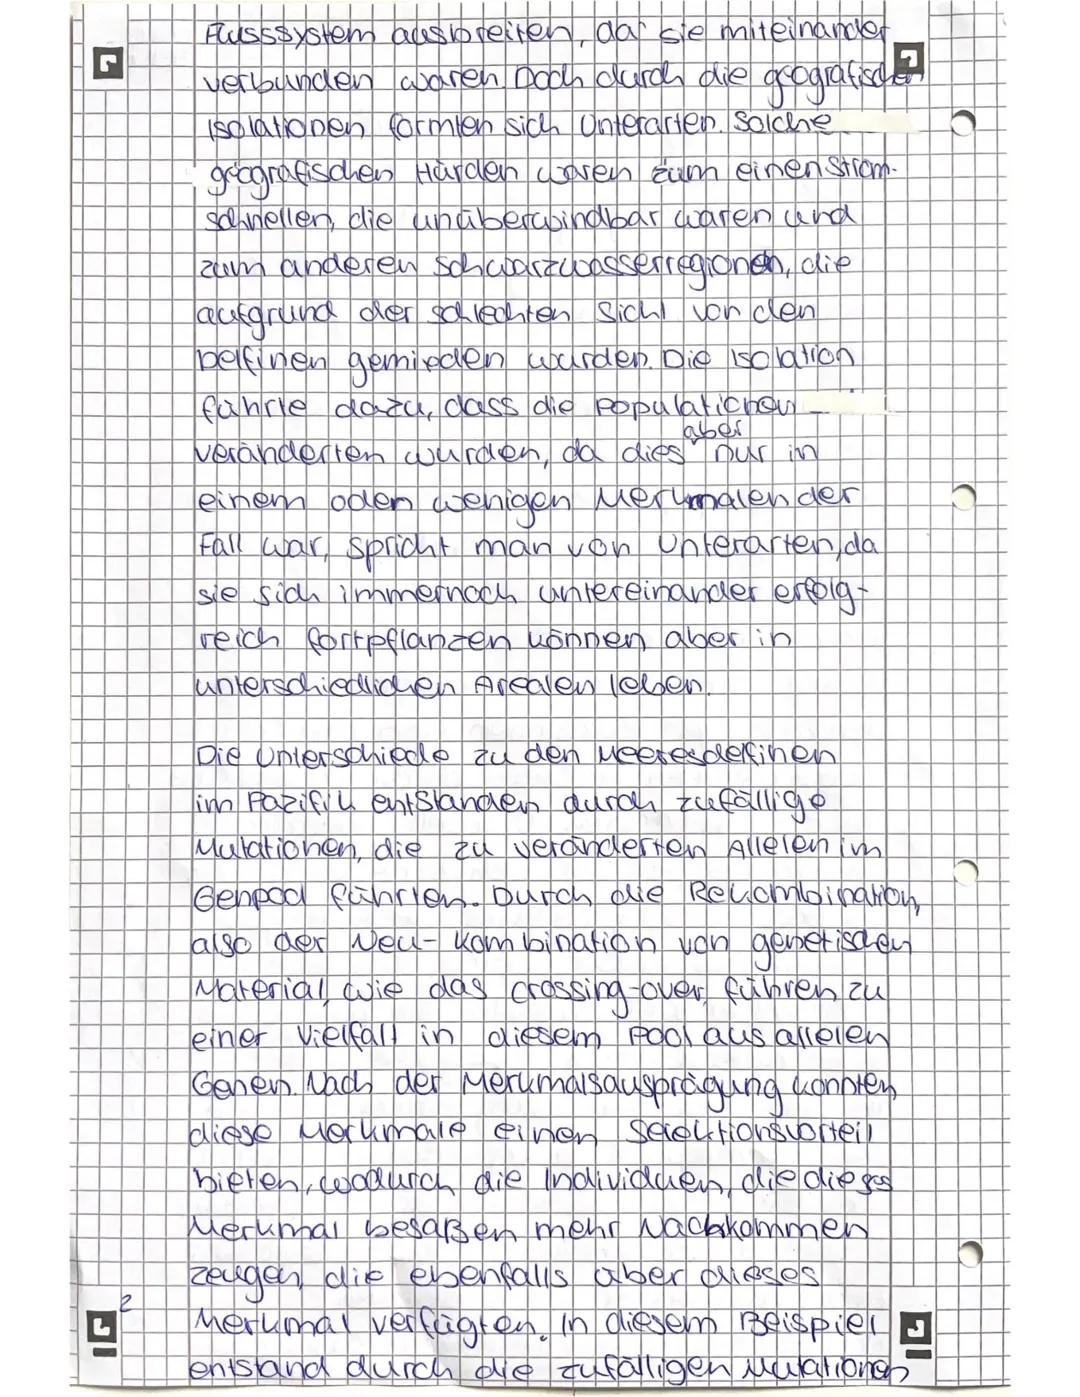 Flusssystem ausbreiten, da sie miteinander
verbunden waren. Doch durch die geografischen
Isolationen formten sich Unterarten. Solche
geografischen Hürden waren zum einen Strom-
schnellen, die unüberwindbar waren und
zum anderen Schwarzwasserregionen, die
aufgrund der schlechten Sicht von den
Delfinen gemieden wurden. Die Isolation
führte dazu, dass die Populationen
aber
veränderten wurden, da dies nur in
einem oder wenigen Merkmalen der
Fall war, spricht man von Unterarten, da
sie sich immernoch untereinander erfolg-
reich fortpflanzen können aber in
unterschiedlichen Arealen leben.
Die Unterschiede zu den Meeresdelfinen
im Pazifik entstanden durch zufällige
Mutationen, die zu veränderten Allelen im
Genpool führten. Durch die Rekombination,
also der Neu-Kombination von genetischen
Material, wie das crossing-over, führen zu
einer Vielfalt in diesem Pool aus allelen
Genen. Nach der Merkmalsausprägung konnten
diese Merkmale einen Selektionsvorteil
bieten, wodurch die Individuen, die dieses
Merkmal besaßen mehr Nachkommen
zeugen, die ebenfalls über dieses
Merkmal verfügten. In diesem Beispiel
2
entstand durch die zufälligen Mutationen